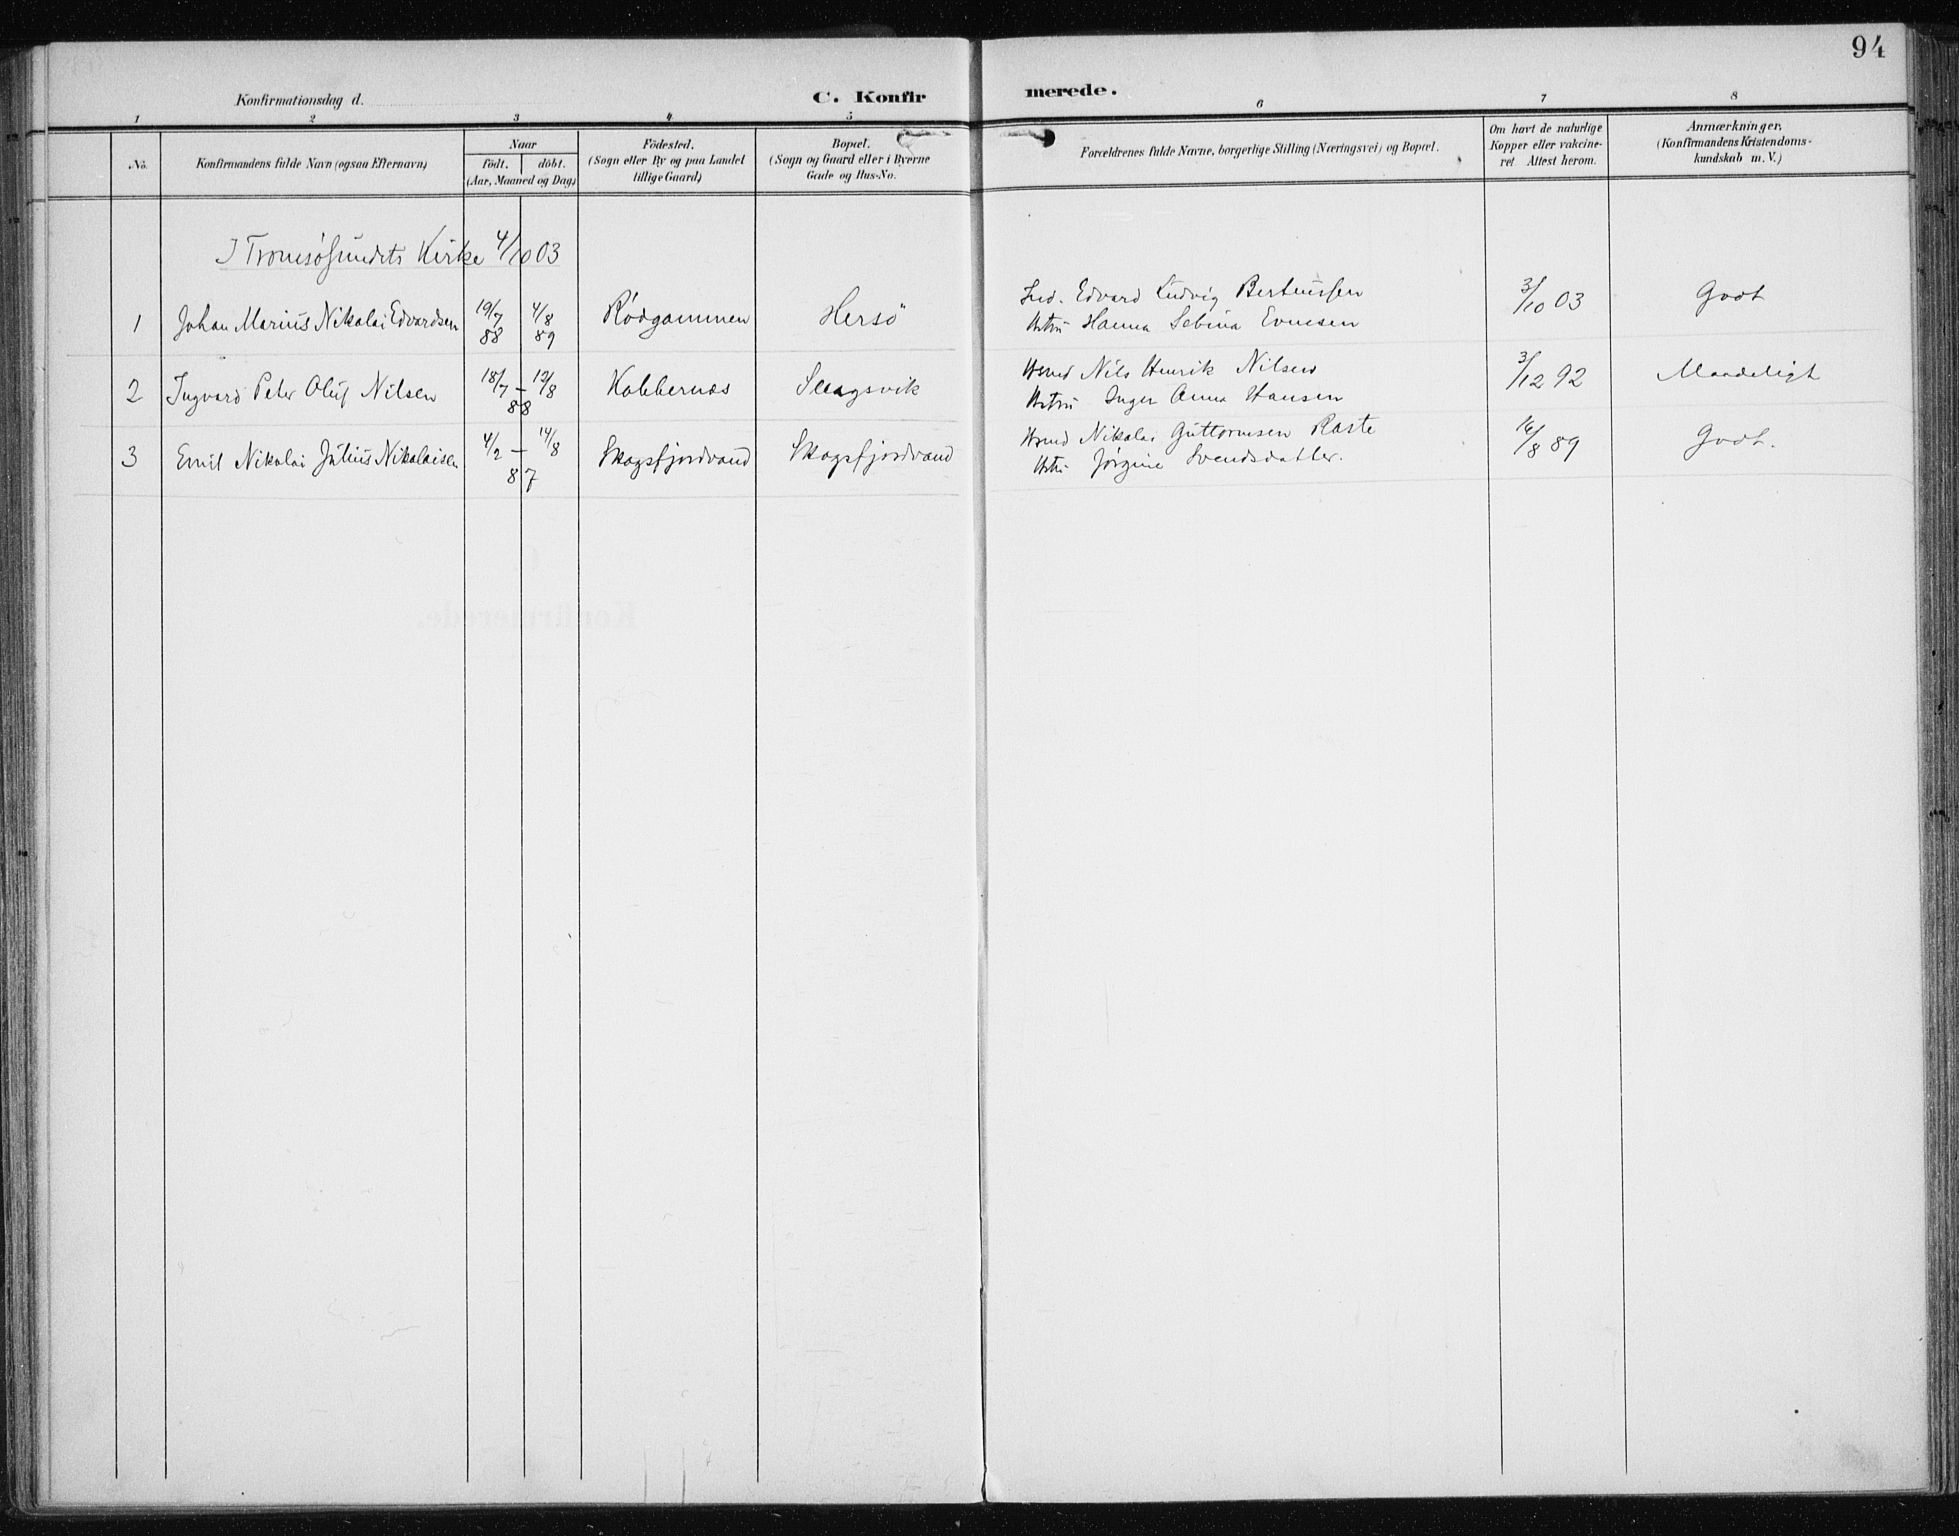 94
Konfirmationsdag d.
C. Konfir
merede.
1 2 3 4 5 6 7 8
No.
Konfirmandens fulde Navn (ogsaa Efternavn)
Naar
födt. döbt.
(Aar, Maaned og Dag)
Födested.
(Sogn eller By og paa Landet
tillige Gaard)
Bopæl.
(Sogn og Gaard eller i Byerne
Gade og Hus-No.
Forældrenes fulde Navne, borgerlige Stilling (Næringsvei) og Bopæl.
Om havt de naturlige
Kopper eller vakcine-
ret Attest herom.
Anmærkninger.
(Konfirmandens Kristendoms-
kundskab m. V.)
I Tromsøsundets Kirke 4/10 03
1 Johan Marius Nikolai Edvardsen 19/7 88 4/8 89 Rödgammen Hersö
Ind. Edvard Ludvig Berteussen
Hstru Hanna Sebina Evensen
3/10 03 Godt
2 Ingvard Peter Oluf Nilsen 18/7 – 12/8 88 Kobbernæs
Nils Henrik Nilsen
Hstru Inger Anna Hansen
3/12 92 Maadeligt
3 Emil Nikolai Julius Nikolaisen 4/2 – 14/8 87 Skogsfjordvand Skogsfjordvand
Nikolai Guttormsen Raste
Hstru Jørgine Svendsdatter.
16/8 89 Godt.